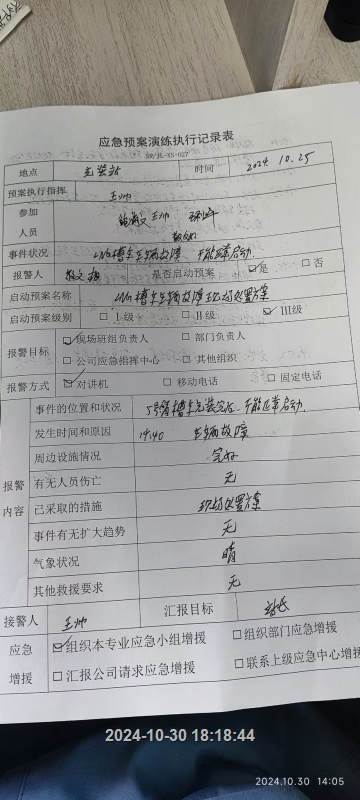 应急预案演练执行记录表
地点 充装站 时间 2024 10.25
预案执行指挥 王帅
参加
人员 王帅
事件状况 LNG槽车车辆故障 不能正常启动.
报警人 是否启动预案 ☑是 □否
启动预案名称 LNG槽车车辆故障现场处置方案
启动预案级别 □Ⅰ级 □Ⅱ级 ☑Ⅲ级
报警目标 ☑现场班组负责人 □部门负责人
□公司应急指挥中心 □其他组织
报警方式 ☑对讲机 □移动电话 □固定电话
报警
内容
事件的位置和状况 5号槽车充装完后.不能正常启动.
发生时间和原因 14:40 车辆故障
周边设施情况 完好
有无人员伤亡 无
已采取的措施 现场处置方案
事件有无扩大趋势 无
气象状况 晴
其他救援要求 无
接警人 王帅 汇报目标 站长
应急
增援
☑组织本专业应急小组增援 □组织部门应急增援
□汇报公司请求应急增援 □联系上级应急中心增援
2024-10-30 18:18:44
2024.10.30 14:05